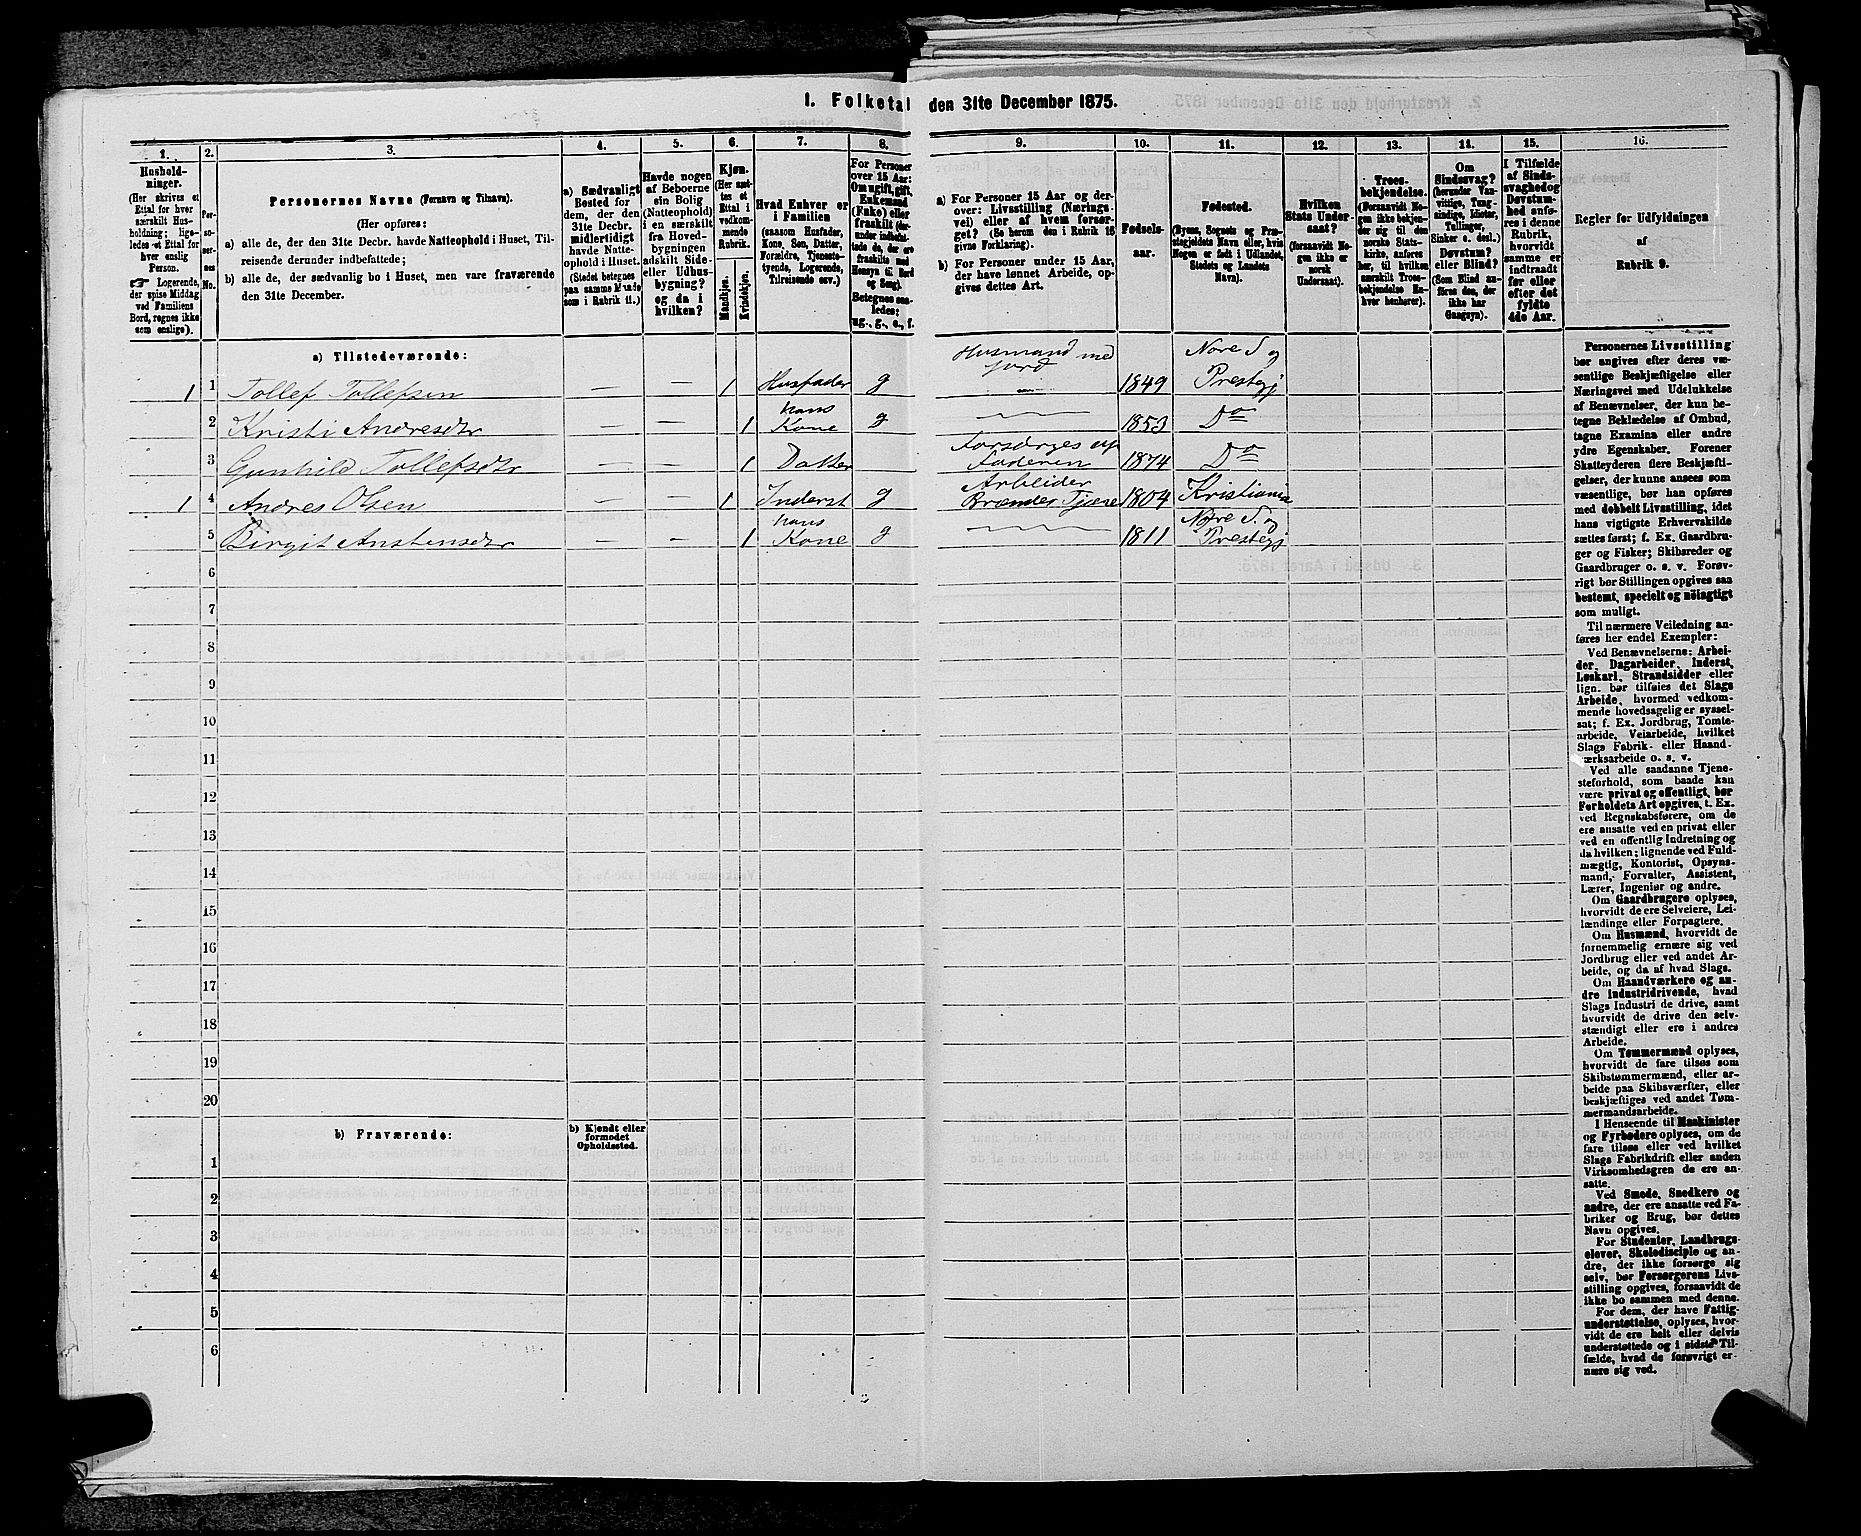 I. Folketal den 31te December 1875.
1. 2. 3. 4. 5. 6. 7. 8. 9. 10. 11. 12. 13. 14. 15. 16.
Husholdninger.
(Her skrives et
Ettal for hver
særskilt Husholdning;
ligeledes et Ettal for
enslig
Person.
☞ Logerende,
der spise Middag
ved Familiens
Bord, regnes ikke
som enslige).
Personernes No.
Personernes Navne (Fornavn og Tilnavn).
(Her opføres:
a) alle de, der den 31te Decbr. havde Natteophold i Huset, Tilreisende derunder indbefattede;
b) alle de, der sædvanlig bo i Huset, men vare fraværende
den 31te December.
a) Sædvanligt
Bosted for
dem, der den
31te Decbr.
midlertidigt
havde Natteophold i Huset.
(Stedet betegnes
paa samme Maade
som i Rubrik 11.)
Havde nogen
af Beboerne
sin Bolig
(Natteophold)
i en særskilt
fra Hovedbygningen
adskilt Side-
eller Udhusbygning?
og da i
hvilken?
Kjøn.
(Her sættes et
Ettal i
vedkommende
Rubrik.
Mandkjøn.
Kvindekjøn.
Hvad Enhver er
i Familien
(saasom Husfader,
Kone, Søn, Datter,
Forældre, Tjenestetyende, Logerende,
Tilreisende osv.)
For Personer
over 15 Aar:
Om ugift, gift,
Enkemand
(Enke) eller
fraskilt
Betegnes saaledes:
ug., g., e., f.
a) For Personer 15 Aar og derover: Livsstilling (Næringsvei) eller af hvem forsørget? (Se herom den i Rubrik 16
givne Forklaring).
b) For Personer under 15 Aar,
der have lønnet Arbeide, opgives dettes Art.
Fødselsaar.
Fødested.
(Byens, Sognets og Præstegjeldets Navn eller, hvis
Nogen er født i Udlandet,
Stedets og Landets
Navn).
Hvilken
Stats Undersaat?
(forsaavidt Nogen ikke er
norsk
Undersaat).
Troesbekjendelse.
(Forsaavidt Nogen ikke bekjender sig til den
norske Statskirke, anføres
her, til hvilken
særskilt Troesbekjendelse Enhver henhører).
Om
Sindssvag?
(herunder Vanvittige, Tungsindige, Idioter,
Sinker o. desl.)
Døvstum?
eller Blind?
(Som Blind anføres den, der
ikke har
Gangsyn).
I Tilfælde
af Sindssvaghed og
Døvstumhed anføres i denne
Rubrik,
hvorvidt
samme er
indtraadt
før eller
efter det
fyldte
4de Aar.
Regler for Udfyldningen
af
Rubrik 9.
a) Tilstedeværende:
1 1 Tollef Tollefsen — — 1 Husfader g Husmand med jord 1849 Nore S og Prestegj
2 Kristi Andresdtr — — 1 hans Kone g 1853 Do
3 Gunhild Tollefsdtr — — 1 Datter Forsørges af Faderen 1874 Do
1 4 Andres Olsen — — 1 Inderst g Arbeider Brænder Tjære 1804 Kristiania
5 Birgit Anstensdtr — — 1 hans Kone g 1811 Nore S. og Prestegj
6
7
8
9
10
11
12
13
14
15
16
17
18
19
20
b) Fraværende:
b) Kjendt eller
formodet
Opholdssted.
1
2
3
4
5
6
Personernes Livsstilling
bør angives efter deres væsentlige Beskjæftigelse eller
Næringsvei med Udelukkelse
af Benævnelser, der kun betegne Beklædelse af Ombud,
tagne Examina eller andre
ydre Egenskaber. Forener
Skatteyderen flere Beskjæftigelser, der kunne ansees som
væsentlige, bør han opføres
med dobbelt Livsstilling, idet
hans vigtigste Erhvervskilde
sættes først; f. Ex. Gaardbruger og Fisker; Skibsreder og
Gaardbruger o. s. v. Forøvrigt bør Stillingen opgives saa
bestemt, specielt og nøiagtigt
som muligt.
Til nærmere Veiledning anføres her endel Exempler:
Ved Benævnelserne: Arbeider, Dagarbeider, Inderst,
Løskarl, Strandsidder eller
lign. bør tilføies det Slags
Arbeide, hvormed vedkommende hovedsagelig er sysselsat; f. Ex. Jordbrug, Tomtearbeide, Veiarbeide, hvilket
Slags Fabrik- eller Haandværksarbeide o. s. v.
Ved alle saadanne Tjenesteforhold, som baade kan
være privat og offentligt, bør
Forholdets Art opgives, t. Ex.
ved Regnskabsførere, om de
ere ansatte ved en privat eller
ved en offentlig Indretning og
da hvilken; lignende ved Fuldmægtig, Kontorist, Opsynsmand, Forvalter, Assistent,
Lærer, Ingeniør og andre.
Om Gaardbrugere oplyses,
hvorvidt de ere Selveiere, Leilændinge eller Forpagtere.
Om Husmænd, hvorvidt de
fornemmelig ernære sig ved
Jordbrug eller ved andet Arbeide, og da af hvad Slags.
Om Haandværkere og andre Industridrivende, hvad
Slags Industri de drive, samt
hvorvidt de drive den selvstændigt eller ere i andres
Arbeide.
Om Tømmermænd oplyses,
hvorvidt de fare tilsøs som
Skibstømmermænd, eller arbeide paa Skibsværfter, eller
beskjæftiges ved andet Tømmermandsarbeide.
I Henseende til Maskinister
og Fyrbødere oplyses, om de
fare tilsøs eller ved hvilket
Slags Fabrikdrift eller anden
Virksomhedsgren de ere ansatte.
Ved Smede, Snedkere og
andre, der ere ansatte ved Fabriker og Brug, bør dettes
Navn opgives.
For Studenter, Landbrugselever, Skoledisciple og andre, der ikke forsørge sig
selv, bør Forsørgerens Livsstilling opgives, forsaavidt de
ikke bo sammen med denne.
For dem, der have Fattigunderstøttelse, oplyses, hvorvidt de ere helt eller delvis
understøttede og i sidste Tilfælde, hvad de forøvrigt ernære sig ved.